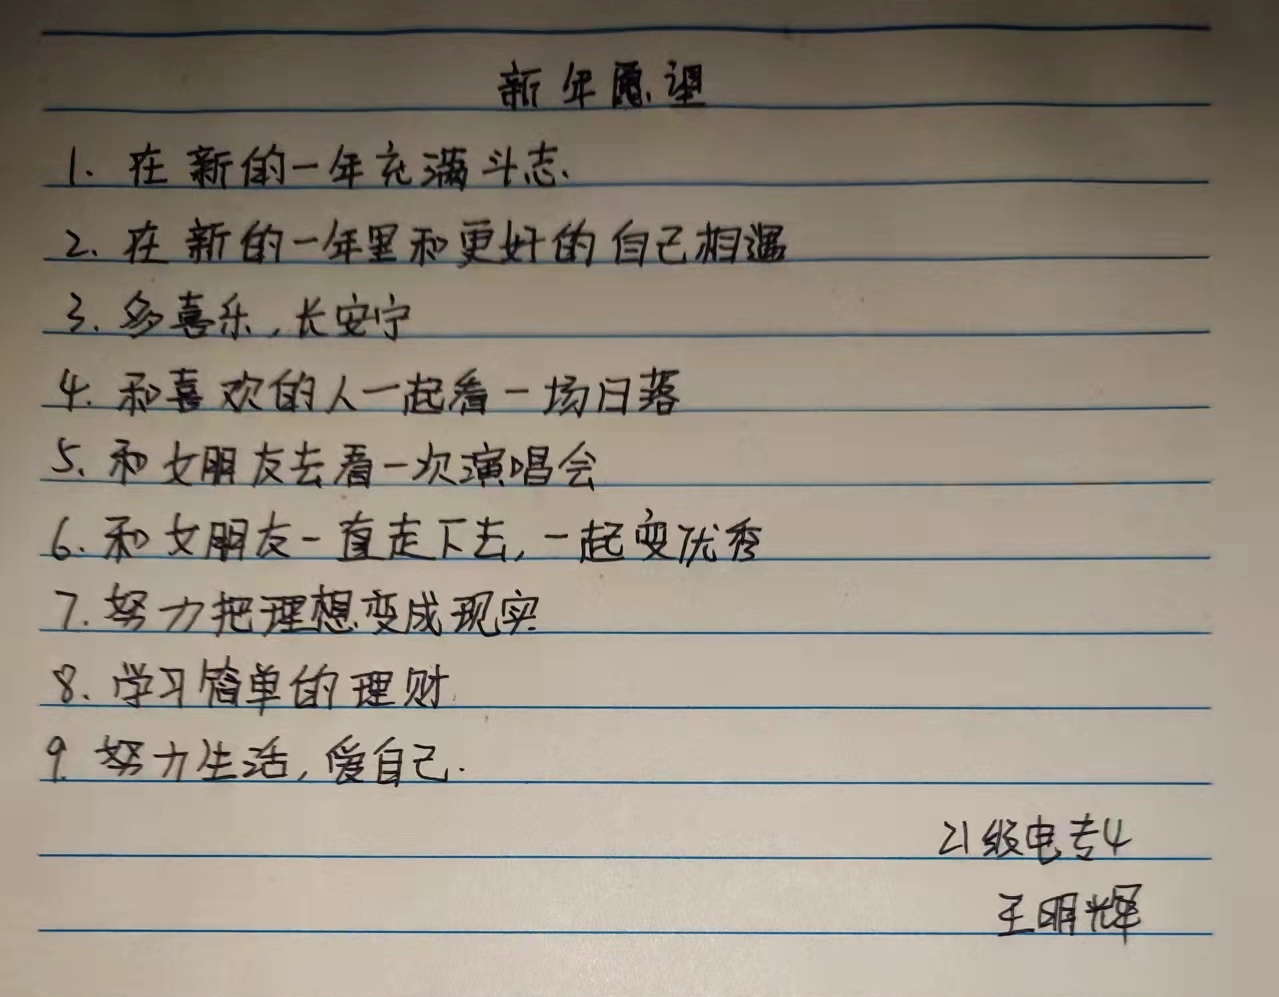 新年愿望
1. 在新的一年充满斗志.
2. 在新的一年里和更好的自己相遇
3. 多喜乐,长安宁
4. 和喜欢的人一起看一场日落
5. 和女朋友去看一次演唱会
6. 和女朋友一直走下去,一起变优秀
7. 努力把理想变成现实
8. 学习简单的理财
9. 努力生活,爱自己.
21级电专4
王明辉